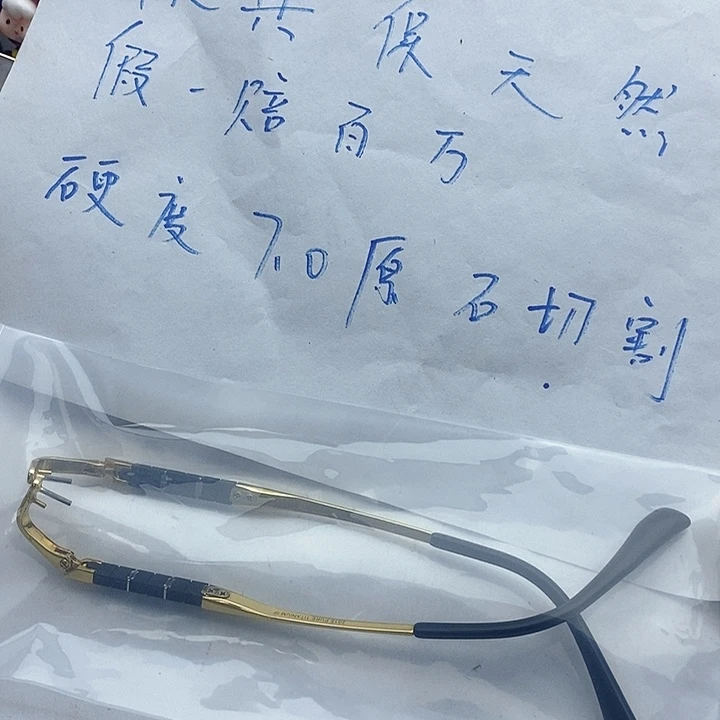 保天然
假一赔百万
硬度7.0原石切割
PURE TITANIUM